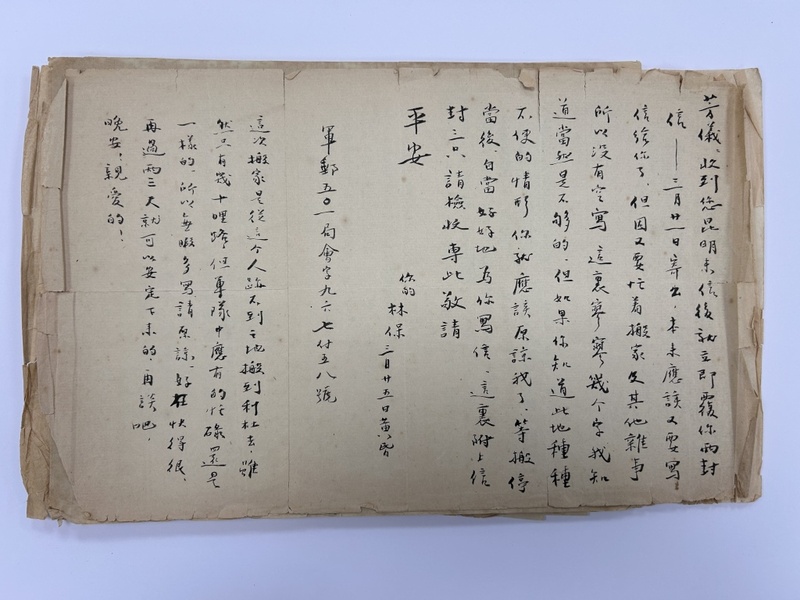 芳儀：收到您昆明來信後就立即覆你兩封
信——三月廿一日寄出，本來應該又要寫
信給你了，但因又要忙着搬家及其他雜事
所以沒有空寫，這裏寥寥幾个字我知
道當然是不够的，但如果你知道此地種種
不便的情形你就應該原諒我了，等搬停
當後，自當好好地為你寫信，這裏附上信
封三只請檢收專此敬請
平安
你的 林保 三月廿五日黃昏
軍郵五〇一局會字九六七付五八號
這次搬家是從這个人跡不到之地搬到利杜去，雖
然只有幾十哩路，但軍隊中應有的忙碌還是
一樣的，所以無暇多寫請原諒，好在快得很，
再過兩三天就可以安定下來的，再談吧，
晚安！親愛的！